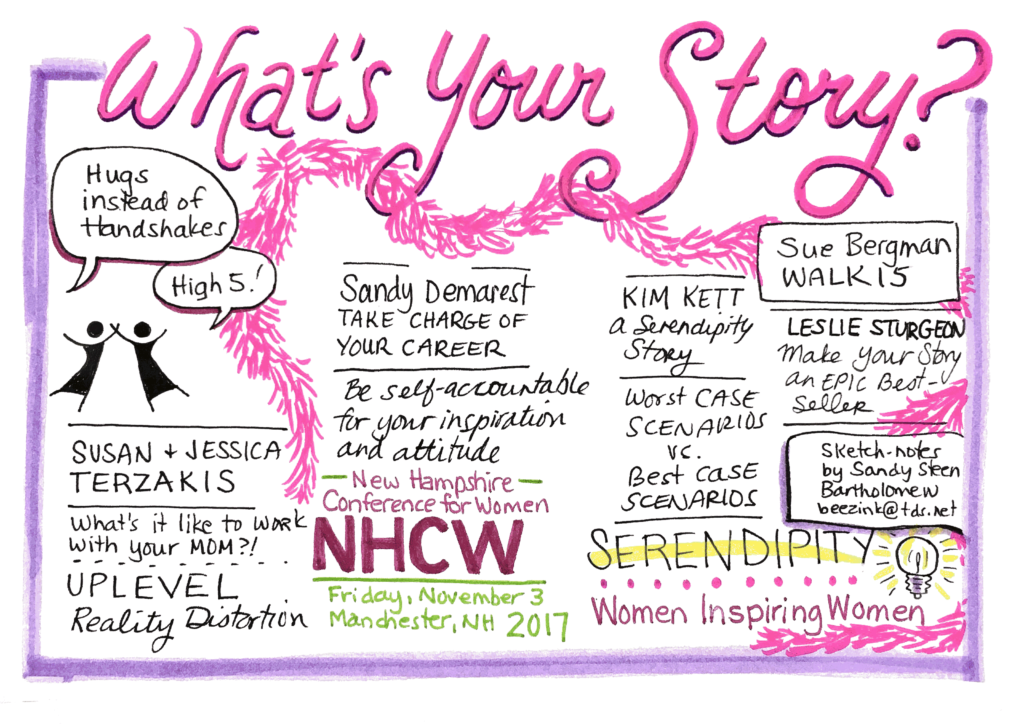 What's Your Story?
Hugs
instead of
Handshakes
High 5!
SUSAN + JESSICA
TERZAKIS
What's it like to work
with your MOM?!
UPLEVEL
Reality Distortion
Sandy Demarest
TAKE CHARGE OF
YOUR CAREER
Be self-accountable
for your inspiration
and attitude
New Hampshire
Conference for Women
NHCW
Friday, November 3
Manchester, NH 2017
KIM KETT
a Serendipity
Story
Worst CASE
SCENARIOS
vs.
Best CASE
SCENARIOS
SERENDIPITY
Women Inspiring Women
Sue Bergman
WALK15
LESLIE STURGEON
Make your Story
an EPIC Best-
Seller
Sketch-notes
by Sandy Steen
Bartholomew
beezink@tds.net